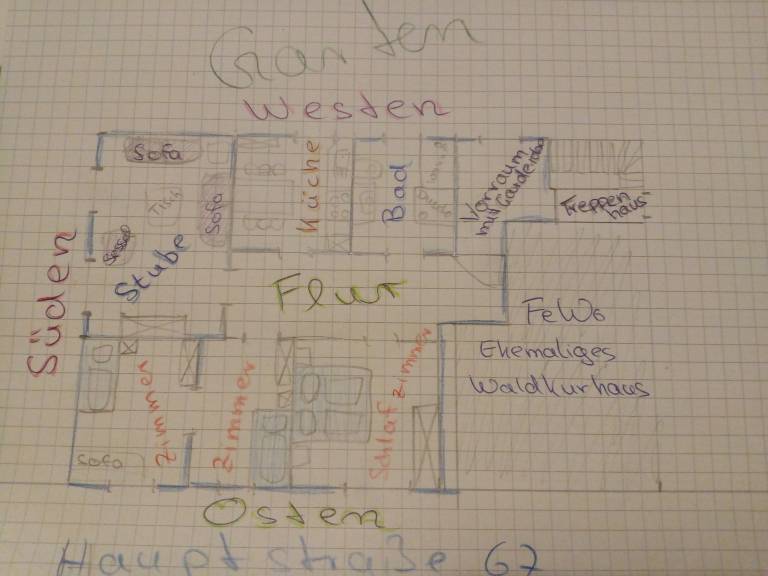 Garten
Westen
Sofa
Tisch
Sofa
Sessel
Stube
Küche
Bad
Dusche
Vorraum
mit Garderobe
Treppen
haus
Süden
Flur
FeWo
Ehemaliges
Waldkurhaus
Zimmer
Zimmer
Schlafzimmer
Sofa
Osten
Hauptstraße 67